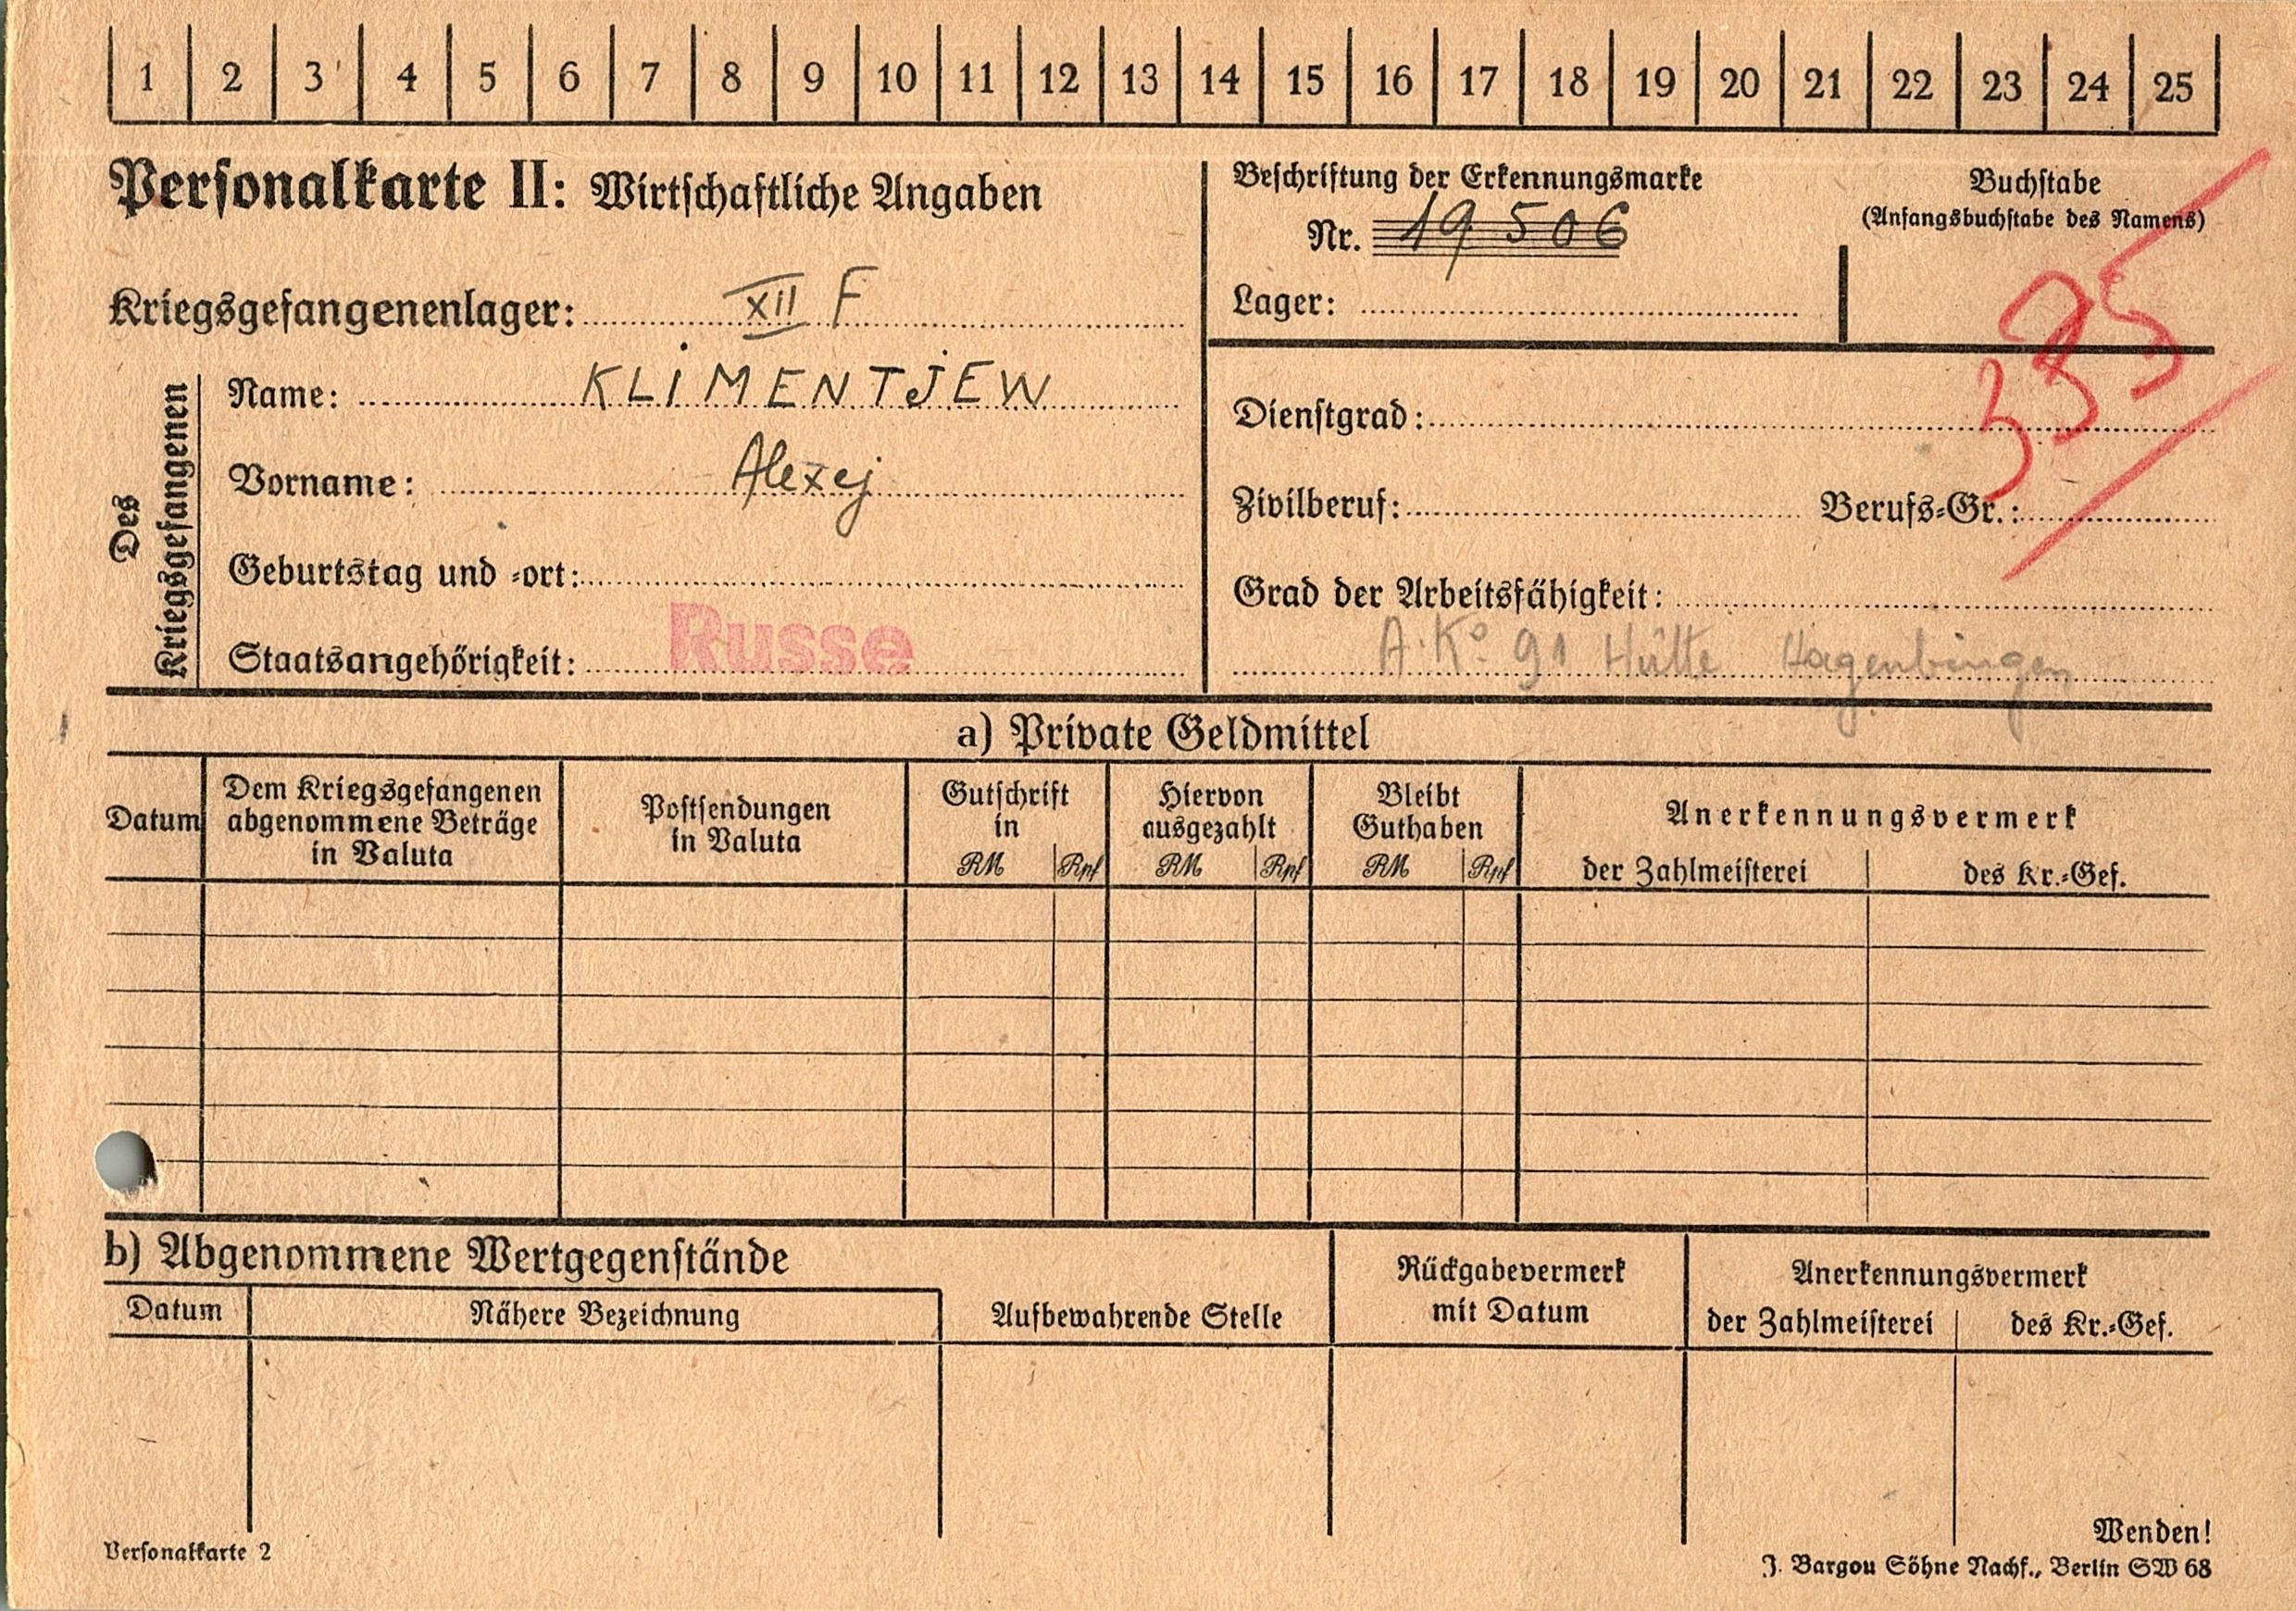 1 2 3 4 5 6 7 8 9 10 11 12 13 14 15 16 17 18 19 20 21 22 23 24 25
Personalkarte II: Wirtschaftliche Angaben
Kriegsgefangenenlager: XII F
Des Kriegsgefangenen
Name: KLIMENTJEW
Vorname: Alexej
Geburtstag und -ort:
Staatsangehörigkeit: Russe
Beschriftung der Erkennungsmarke
Nr. 19506
Lager:
Buchstabe
(Anfangsbuchstabe des Namens)
Dienstgrad:
Zivilberuf: Berufs-Gr.:
Grad der Arbeitsfähigkeit:
A.Ko 91 Hütte Hagenbingen
a) Private Geldmittel
Datum
Dem Kriegsgefangenen
abgenommene Beträge
in Valuta
Postsendungen
in Valuta
Gutschrift
in
RM Rpf
Hiervon
ausgezahlt
RM Rpf
Bleibt
Guthaben
RM Rpf
Anerkennungsvermerk
der Zahlmeisterei des Kr.-Gef.
b) Abgenommene Wertgegenstände
Datum Nähere Bezeichnung
Aufbewahrende Stelle
Rückgabevermerk
mit Datum
Anerkennungsvermerk
der Zahlmeisterei des Kr.-Gef.
Wenden!
Personalkarte 2
J. Bargou Söhne Nachf., Berlin SW 68